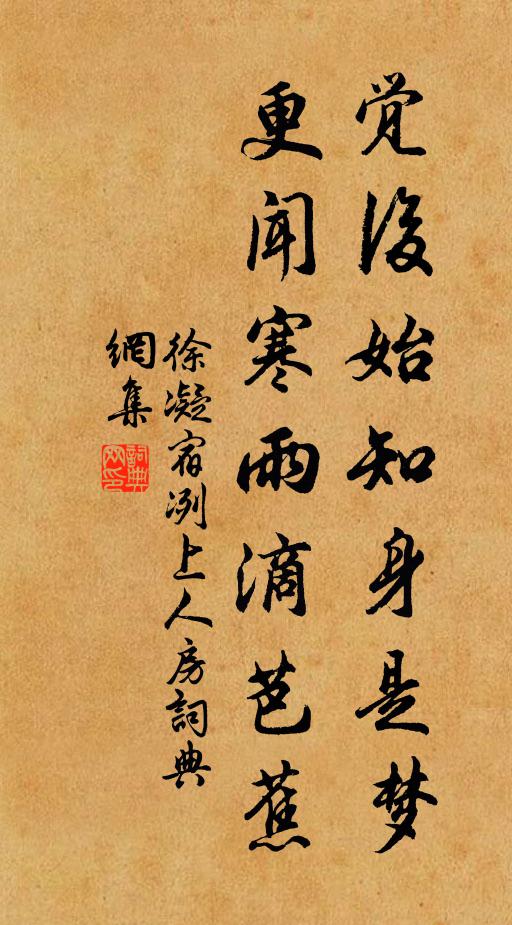 觉後始知身是梦
更闻寒雨滴芭蕉
徐凝宿冽上人房詞典
網集
詞典網印